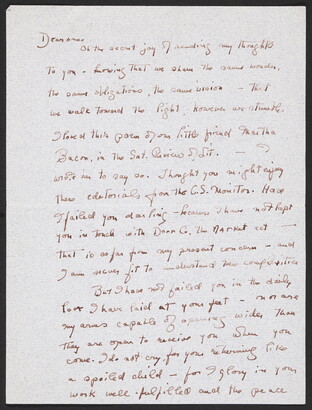 Dearone
Oh the secret joy of sending my thoughts
to you - knowing that we share the same wonder,
the same obligations, the same vision - that
we walk toward the light, however we stumble.
I loved this poem of our little friend Martha
Bacon, in the Sat. Review of Lit. — I
wrote her to say so. Thought you might enjoy
these editorials from the C.S. Monitor. Have
I failed you darling - because I have not kept
you in touch with Dear G. the Market etc —
that is so far from my present concern - and
I am never fit to understand the complexities
But I have not failed you in the daily
love I have laid at your feet - nor are
my arms capable of opening wider than
they are open to receive you when you
come. I do not cry, for your returning like
a spoiled child - for I glory in your
work well fulfilled and the peace